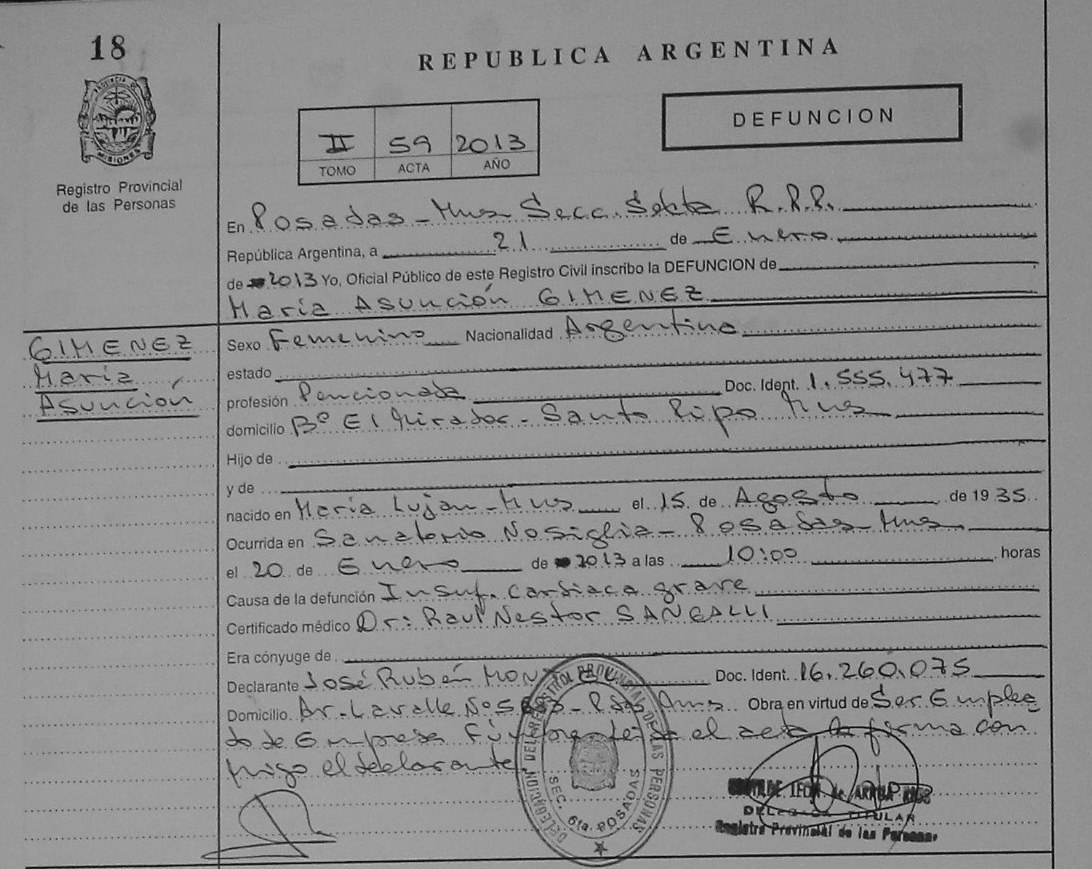 18
REPUBLICA ARGENTINA
PROVINCIA DE MISIONES
Registro Provincial
de las Personas
II 59 2013
TOMO ACTA AÑO
DEFUNCION
En Posadas - Mnes Secc. Sexta R.P.P.
República Argentina, a 21 de Enero
de 2013 Yo, Oficial Público de este Registro Civil inscribo la DEFUNCION de
María Asunción GIMENEZ
GIMENEZ
María
Asunción
Sexo Femenino Nacionalidad Argentina
estado
profesión Pencionada Doc. Ident. 1.555.477
domicilio Bº El Mirador - Santo Pipo Mnes
Hijo de
y de
nacido en María Luján - Mnes el 15 de Agosto de 1935
Ocurrida en Sanatorio Nosiglia - Posadas - Mnes
el 20 de Enero de 2013 a las 10:00 horas
Causa de la defunción Insuf. cardiaca grave
Certificado médico Dr: Raul Nestor SANGALLI
Era cónyuge de
Declarante José Rubén Doc. Ident. 16.260.075
Domicilio Av. Lavalle Nº Pdas Mns Obra en virtud de Ser Emplea
do de Empresa el acta la firma con
migo el declarante
DELEGACION DEL REGISTRO PROVINCIAL DE LAS PERSONAS
SEC. 6ta. POSADAS
DELEGADA TITULAR
Registro Provincial de las Personas